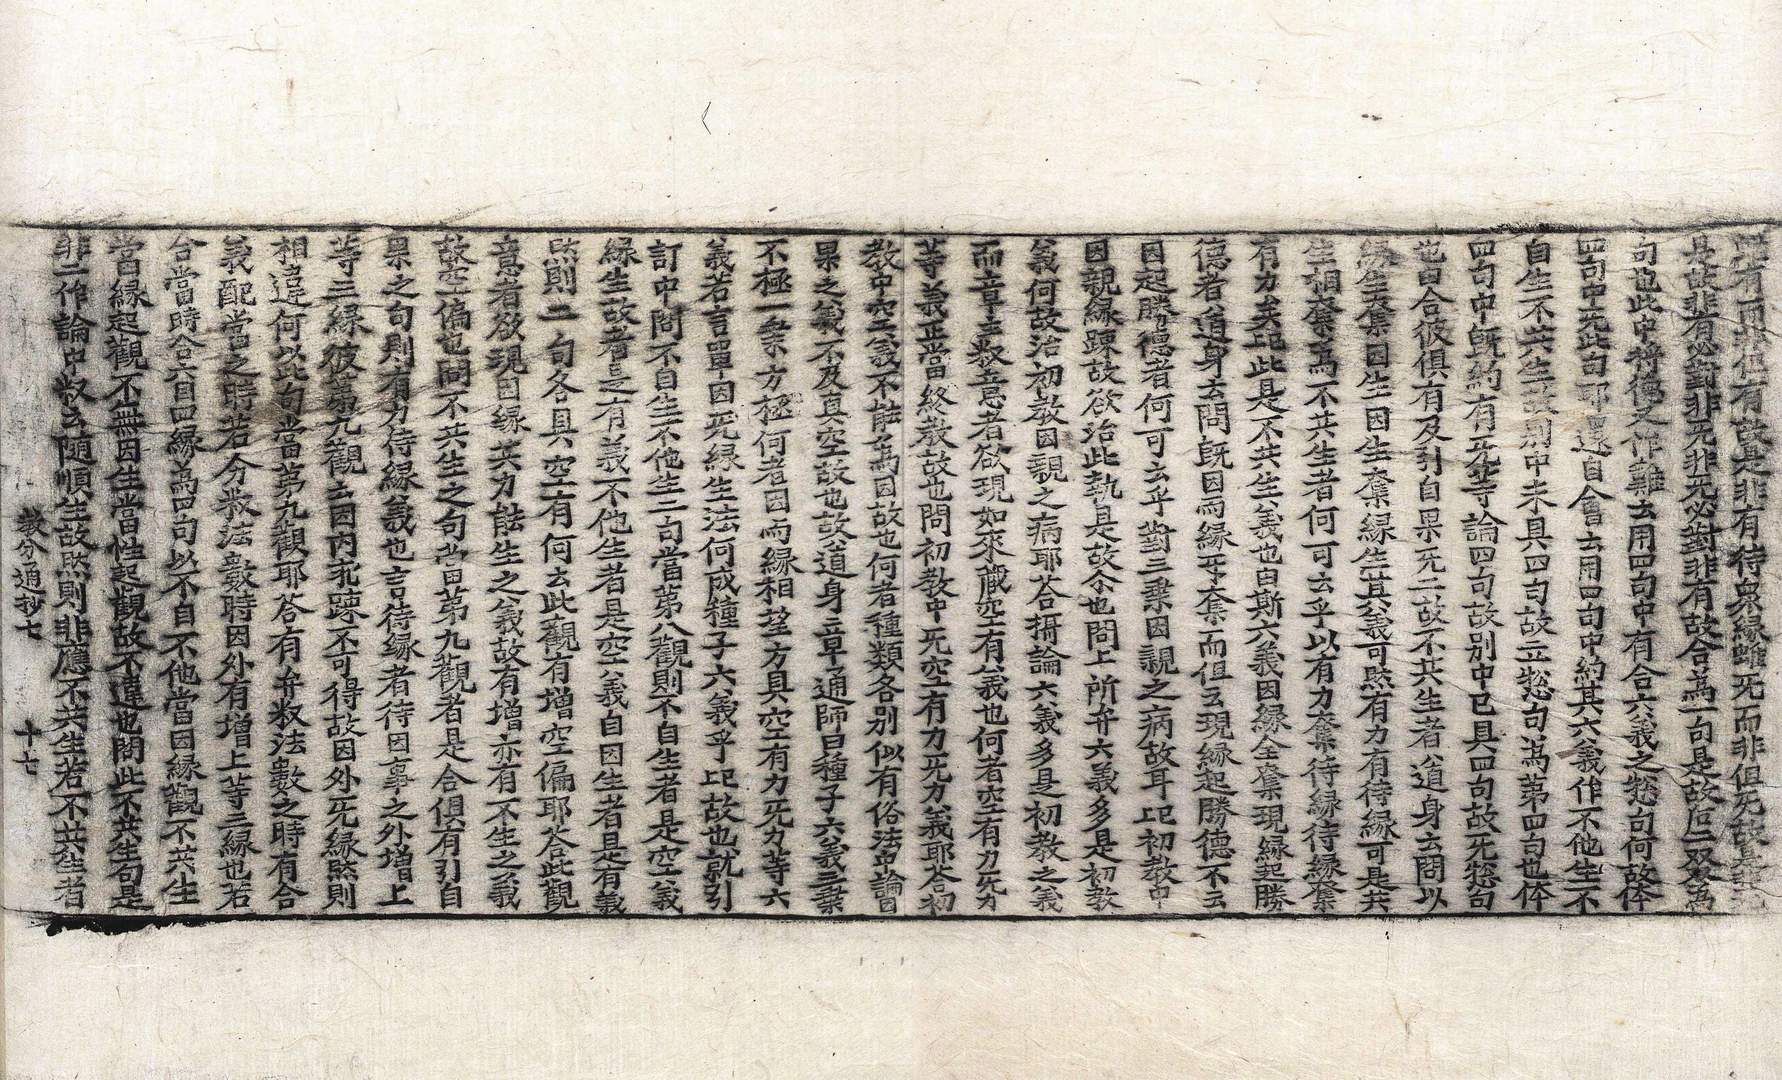 有而非但有故是非有待衆緣雖无而非但无故是非无
是故非有必對非无非无必對非有故合爲一句是故后二双爲
句也此中将德又作難云用四句中有合六義之惣句何故体
四句中无此句耶還自會去用四句中約其六義作不他生不
自生不共生故別中未具四句故立惣句爲苐四句也体
四句中旣約有无等論四句故別中已具四句故无惣句
也因合彼俱有及引自果无二故不共生者道身云問以
緣生奪因生因生奪緣生其義可然有力有待緣可是共
生相奪爲不共生者何可云乎以有力奪待緣待緣奪
有力矣此是不共生義也由斯六義因緣全奪現緣起勝
德者道身云問旣因而緣互奪而但云現緣起勝德不云
因起勝德者何可云乎對三乗因親之病故耳初教中
因親緣踈故欲治此執是故尒也問上所弁六義多是初教
義何故治初教因親之病耶答攝論六義多是初教之義
而章主教意者欲現如來藏空有義也何者空有力无力
等義正當終教故也問初教中无空有力无力義耶答初
教中空義不能爲因故也何者種類各別似有俗法品論因
果之義不及真空故也故道身章通師曰種子六義三乗
不極一乗方極何者因而緣相望方具空有力无力等六
義若言單因无緣生法何成種子六義乎故也就引
訂中問不自生不他生二句當苐八觀則不自生者是空義
緣生故者是有義不他生者是空義自因生者是有義
然則二句各具空有何云此觀有增空偏耶答此觀
意者欲現因緣共力能生之義故有增亦有不生之義
故空偏也問不共生之句當苐九觀者是合俱有引自
果之句則有力待緣義也言待緣者待因事之外增上
等三緣彼苐九觀云因內孤踈不可得故因外无緣然則
相違何以此句當苐九觀耶答有弁教法數之時有合
義配當之時若分教法數時因外有增上等三緣也若
合當時合六因四緣爲四句以不自不他當因緣觀不共生
當緣起觀不無因生當性起觀故不違也問此不共生句是
非二作論中叔云随順生故然則非應不共生若不共生者
教分通抄七　十七